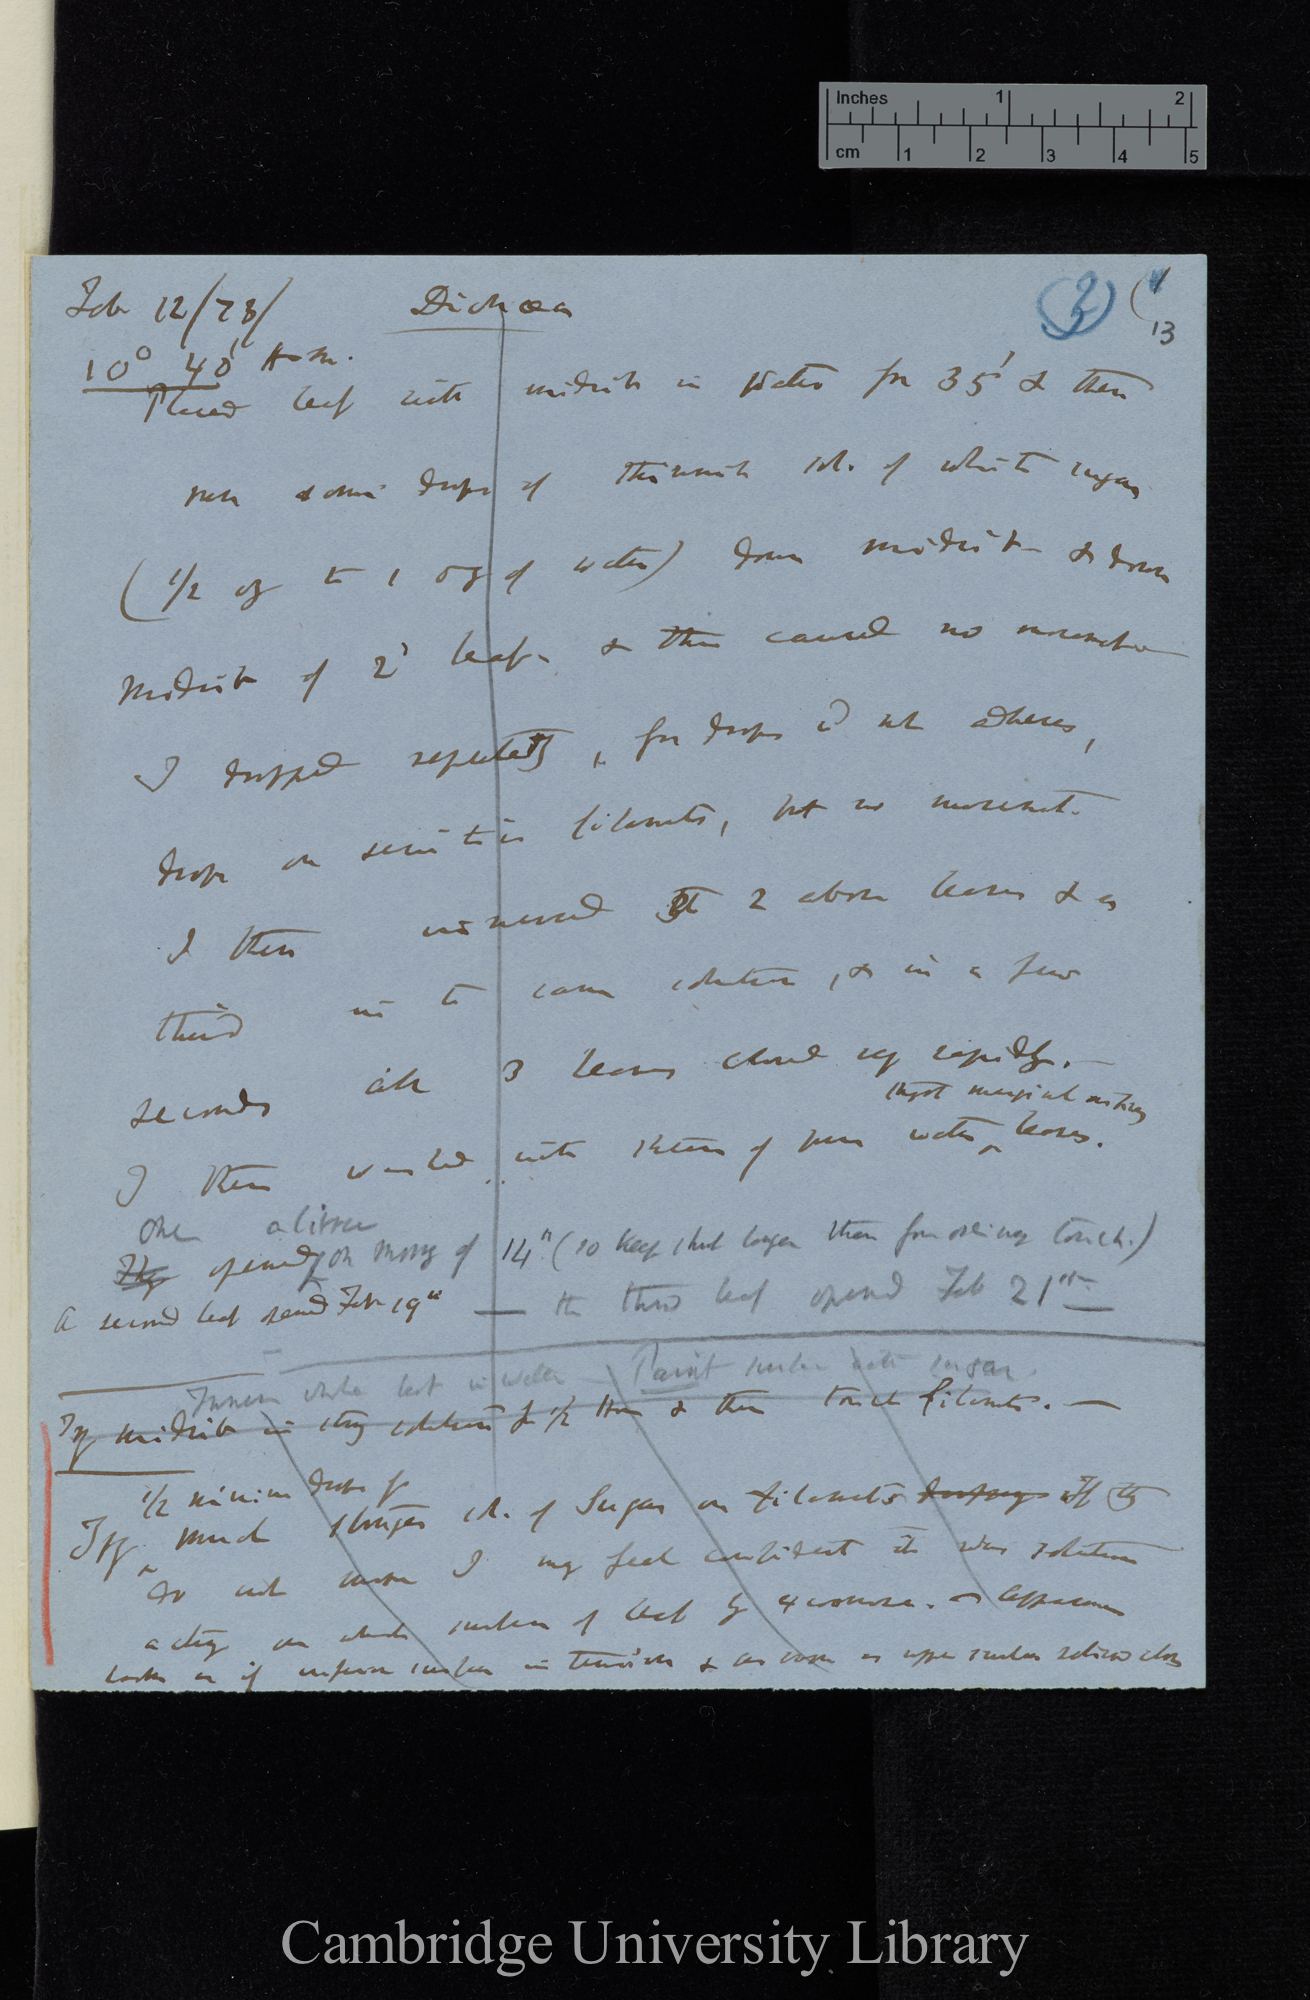 Inches 1 2
cm 1 2 3 4 5
Feb 12/73/ Dionæa (3) (1
13
10° 40' H
Placed leaf with midrib in water for 35' & then
run some drops of thickish sol. of white sugar
(1/2 oz to 1 oz of water) down midrib & down
midrib of 2d leaf & this caused no movement
I dropped repeatedly, for drops wd not adhere,
drops on sensitive filaments, but no movement.
I then immersed the 2 above leaves & a
third in the same solution, & in a few
seconds all 3 leaves closed up rapidly.—
I then washed with stream of pure water leaves.
One a little
opened on morg of 14th (so keep shut longer than from ordinary touch.)
A second leaf opened Feb 19th — the third leaf opened Feb 21st —
Immerse whole leaf in water — Paint surface with sugar.
Try midrib in strong solution for 1/2 Hour & then touch filaments.—
1/2 minim drops of
Try much stronger sol. of Sugar on filaments If they
do not move I may feel confident it was solution
acting on whole surface of leaf by exosmose.— Appearance
looks as if surface in tension & as soon as upper surface
Cambridge University Library